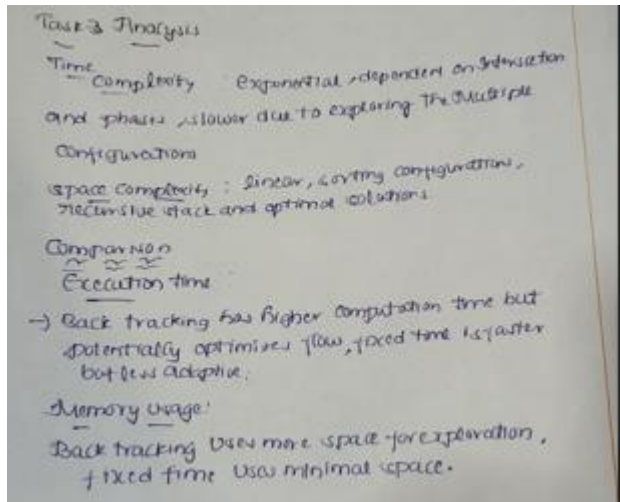 Task 3 Analysis
Time
Complexity exponential, dependent on Intersection
and phases, slower due to exploring the Multiple
Configurations
space Complexity : linear, sorting configurations,
recursive stack and optimal solutions
Comparison
Execution time
→ Back tracking has higher computation time but
potentially optimizes flow, fixed time is faster
but less adaptive.
Memory usage:
Back tracking uses more space for exploration,
fixed time uses minimal space.